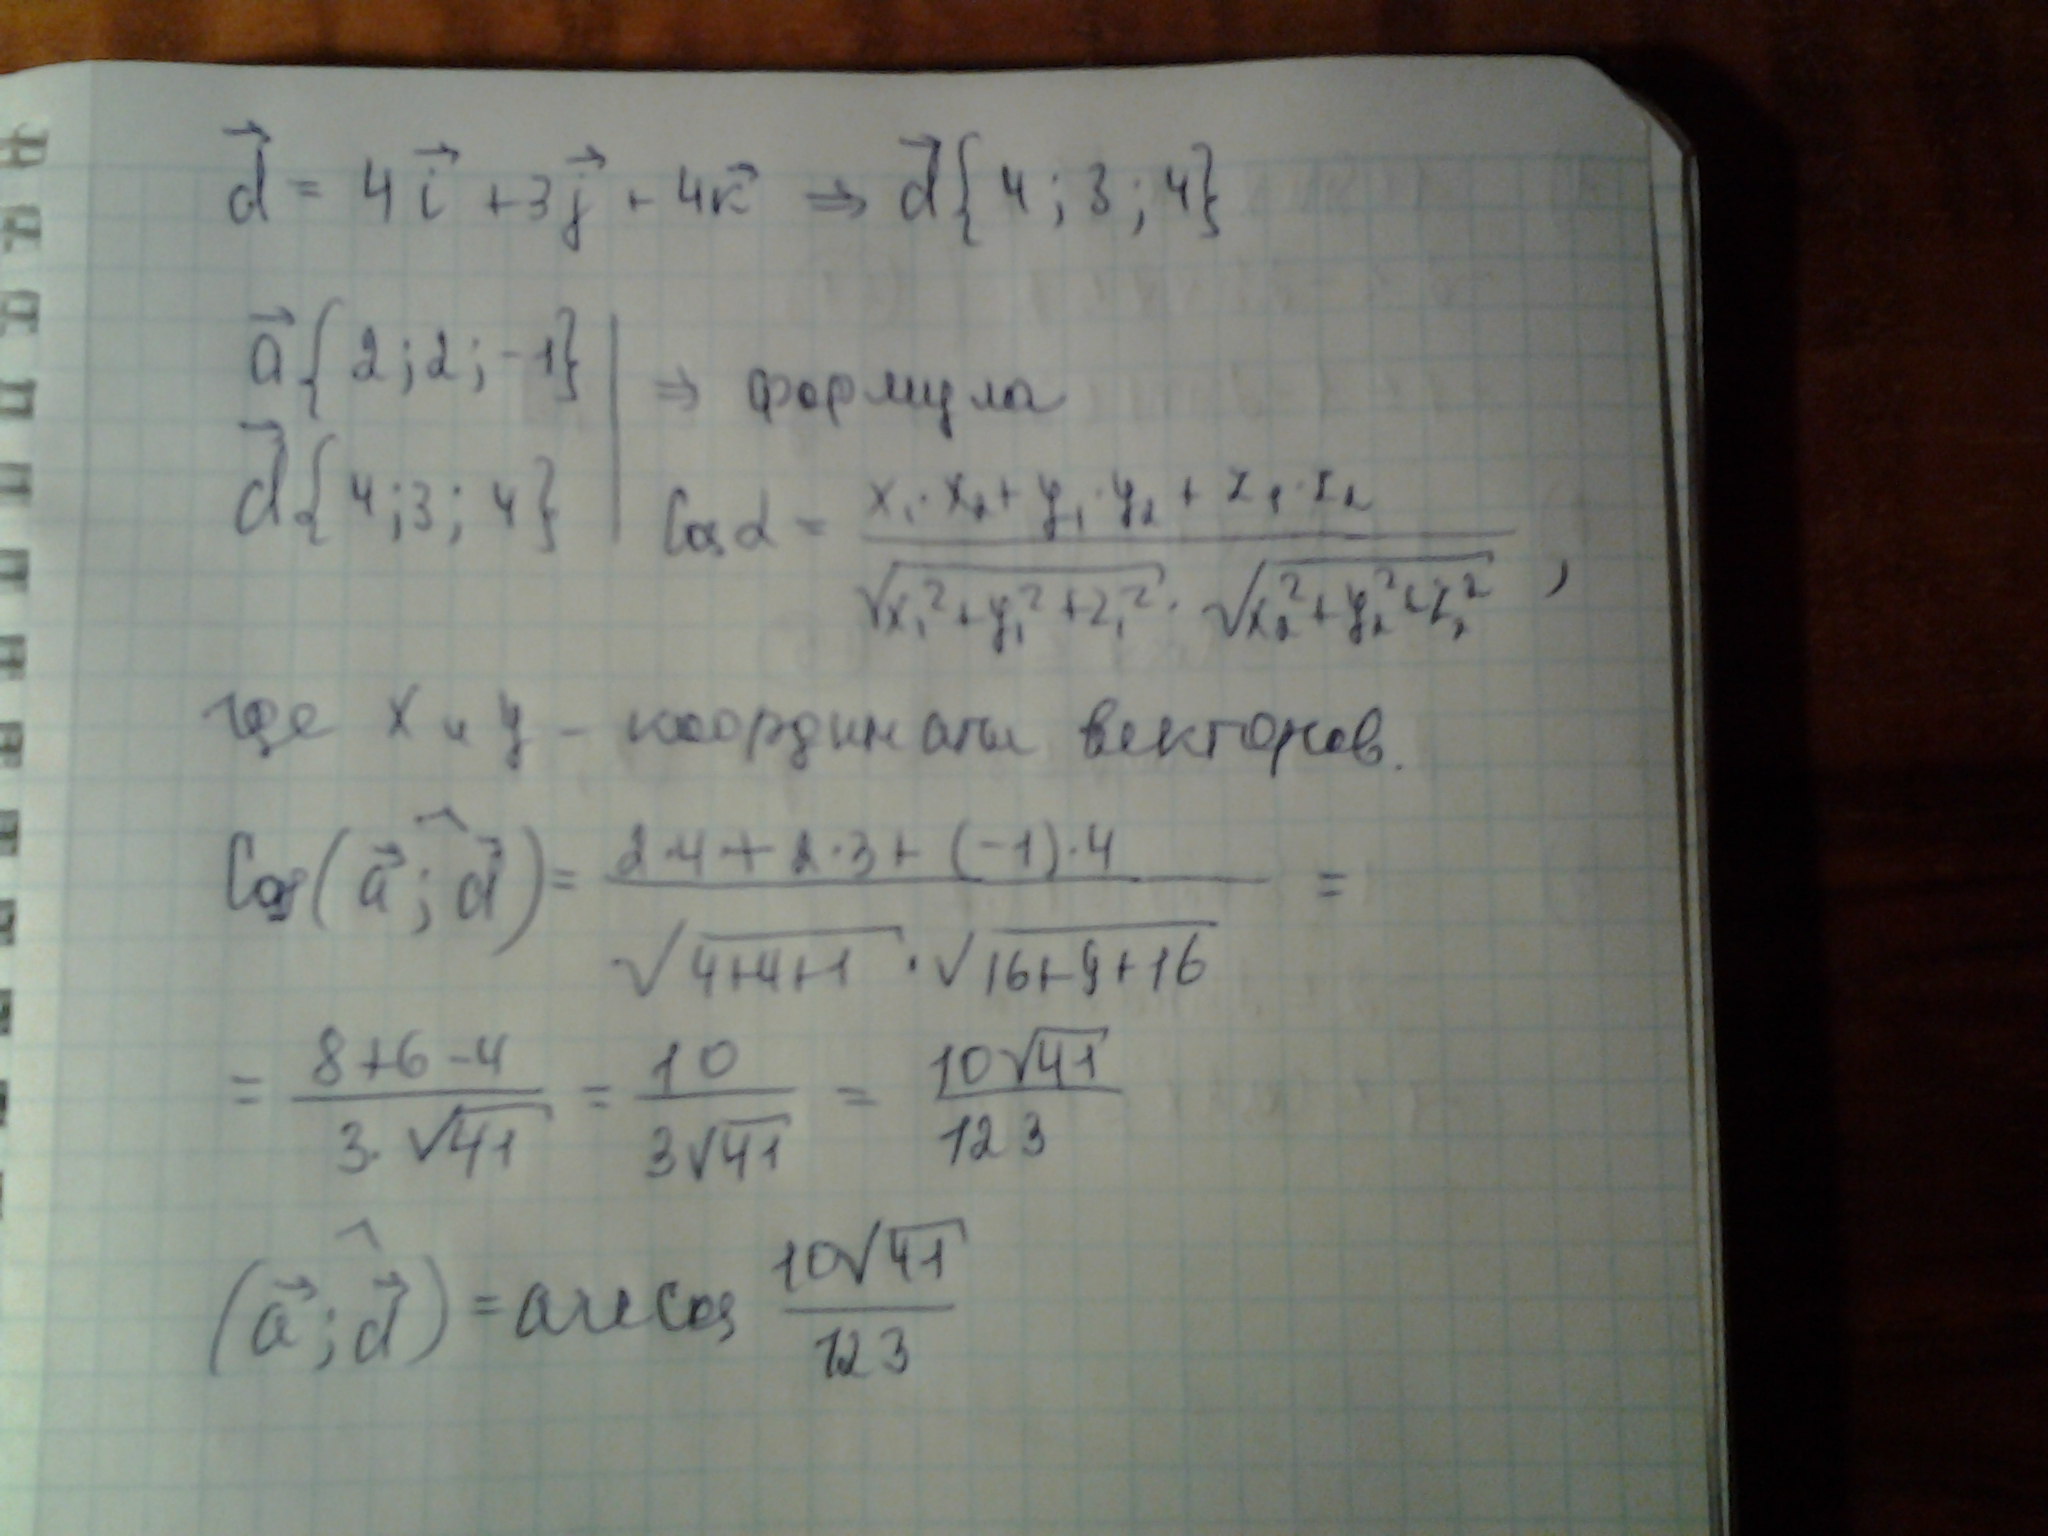 d⃗ = 4i⃗ + 3j⃗ + 4k⃗ ⇒ d⃗{4; 3; 4}
a⃗{2; 2; -1} | ⇒ формула
d⃗{4; 3; 4} | Cos α = (x₁·x₂ + y₁·y₂ + z₁·z₂) / (√(x₁² + y₁² + z₁²) · √(x₂² + y₂² + z₂²)),
где x и y - координаты векторов.
Cos(a⃗; d⃗) = (2·4 + 2·3 + (-1)·4) / (√(4+4+1) · √(16+9+16)) =
= (8+6-4) / (3·√41) = 10 / (3√41) = 10√41 / 123
(a⃗; d⃗) = arccos 10√41 / 123